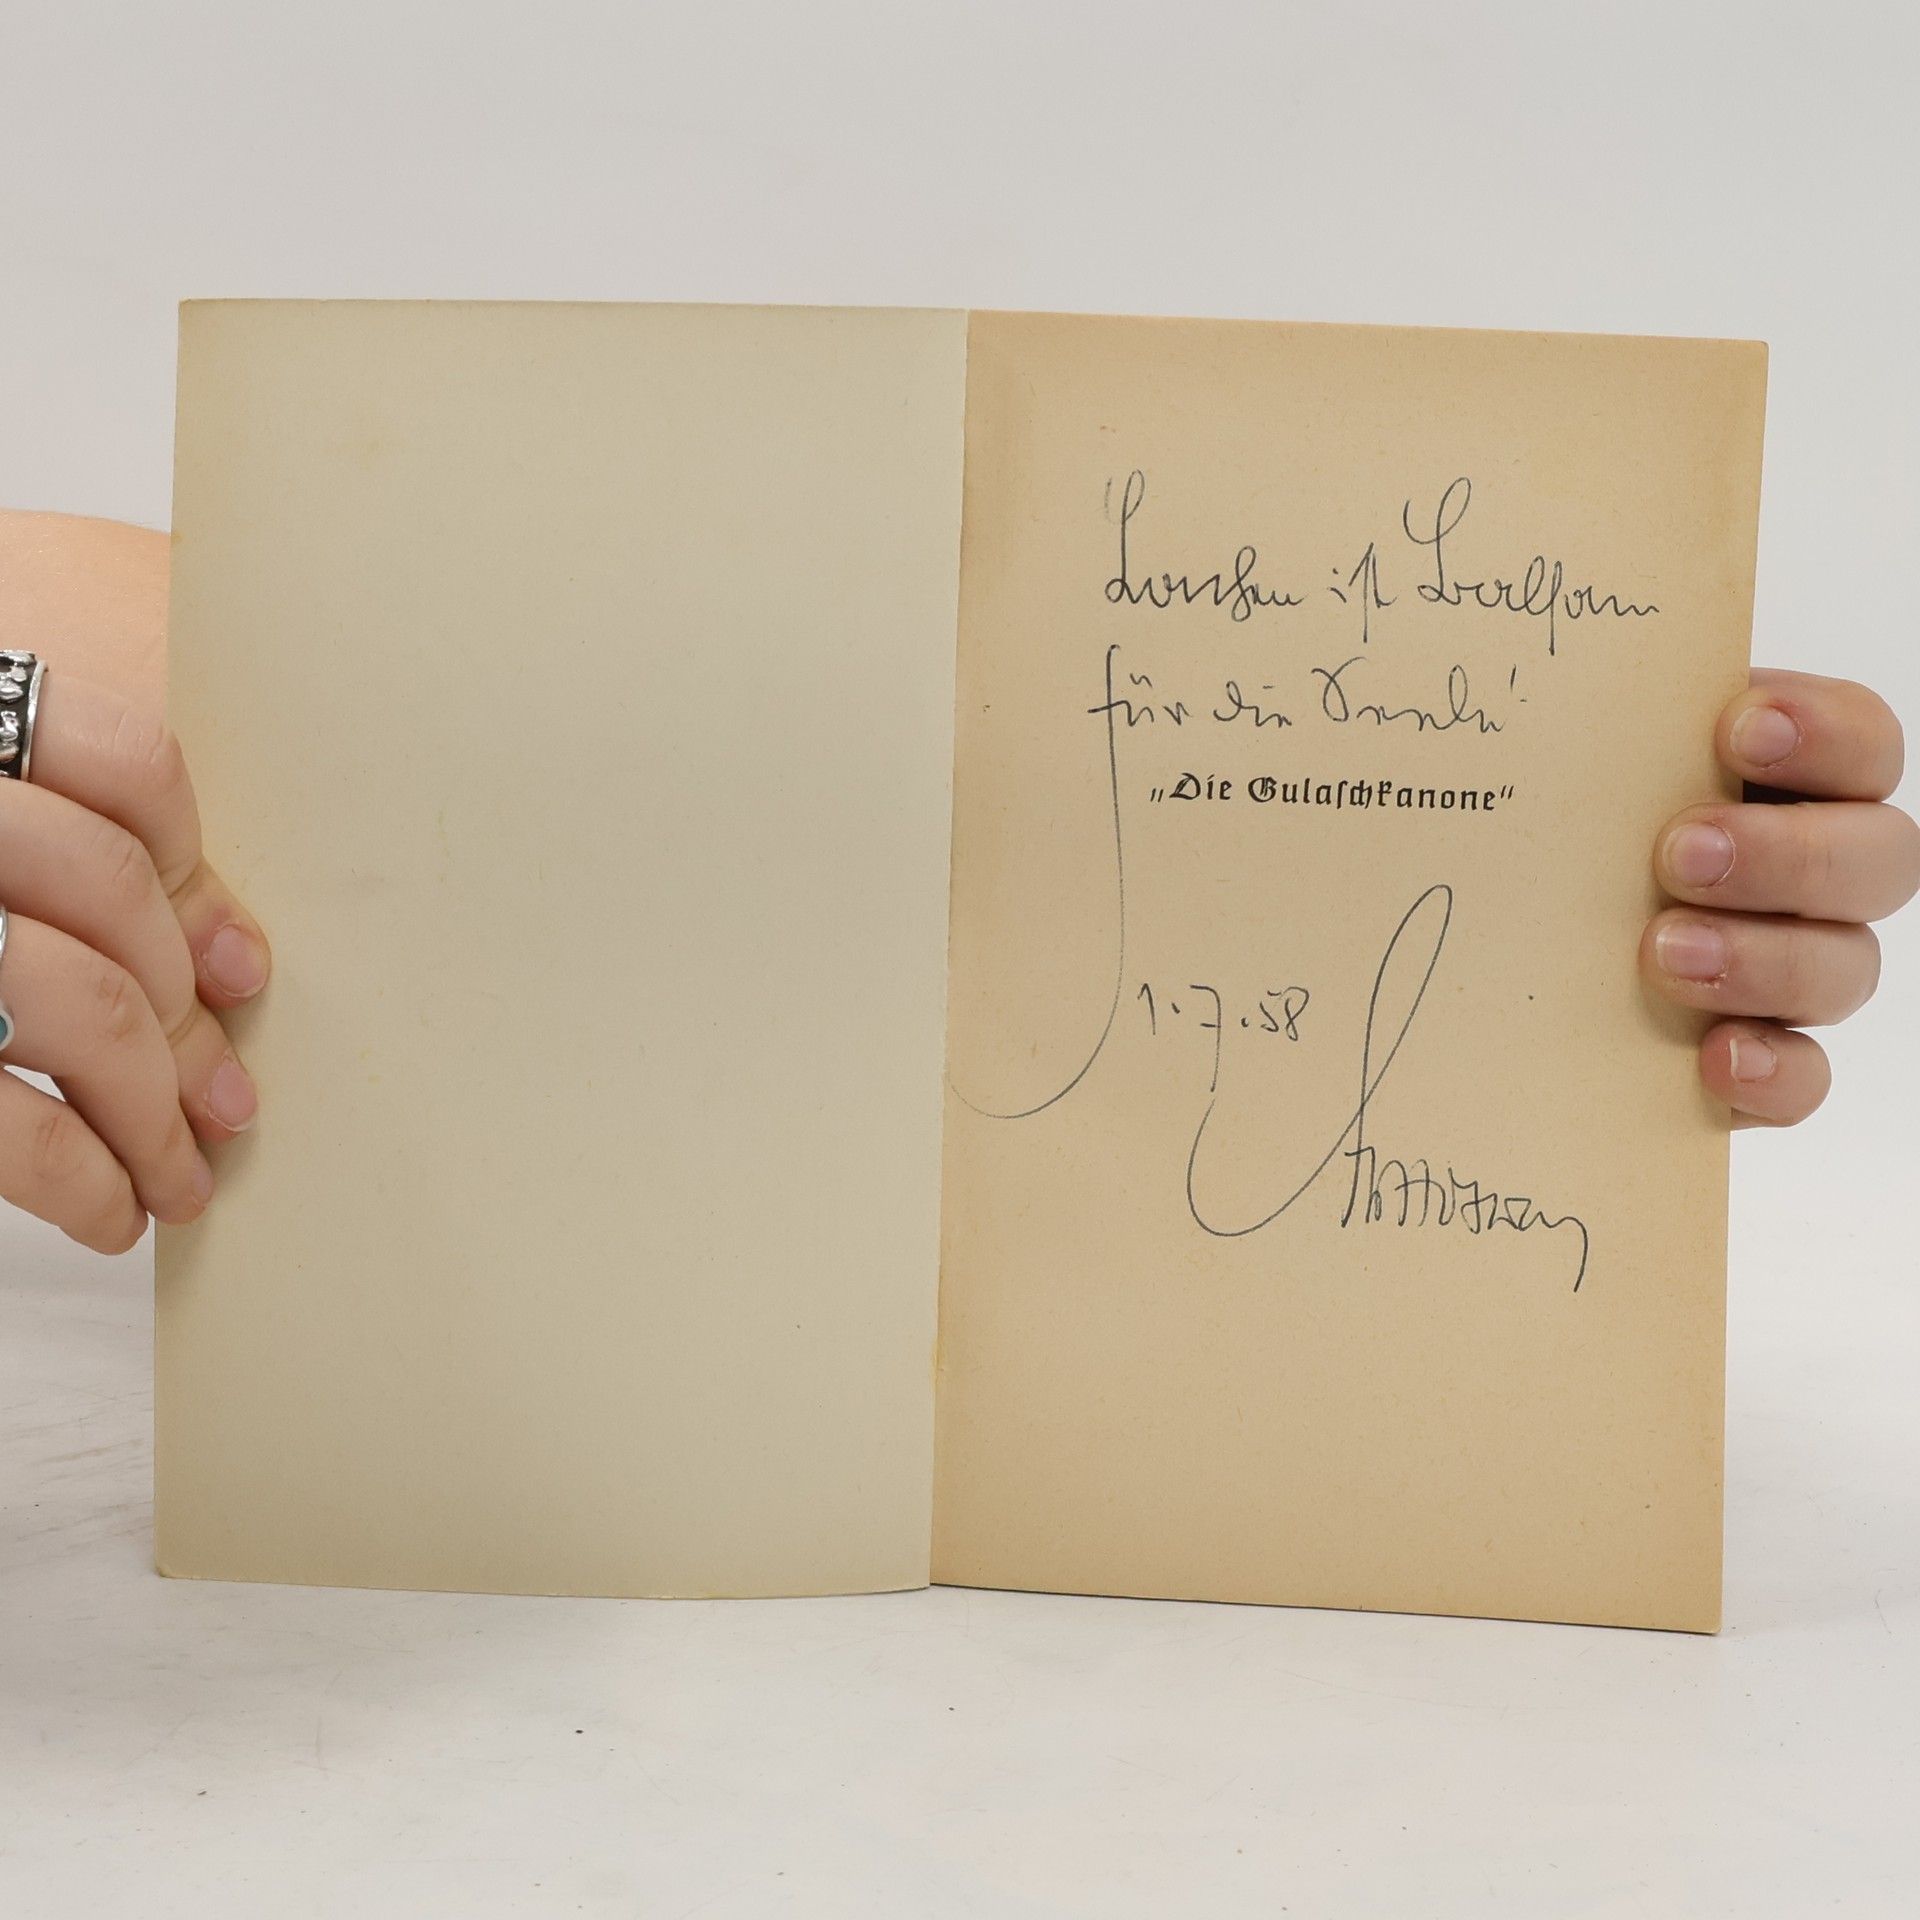 Lachen ist Balsam
für die Seele!
„Die Gulaschkanone“
1.7.58